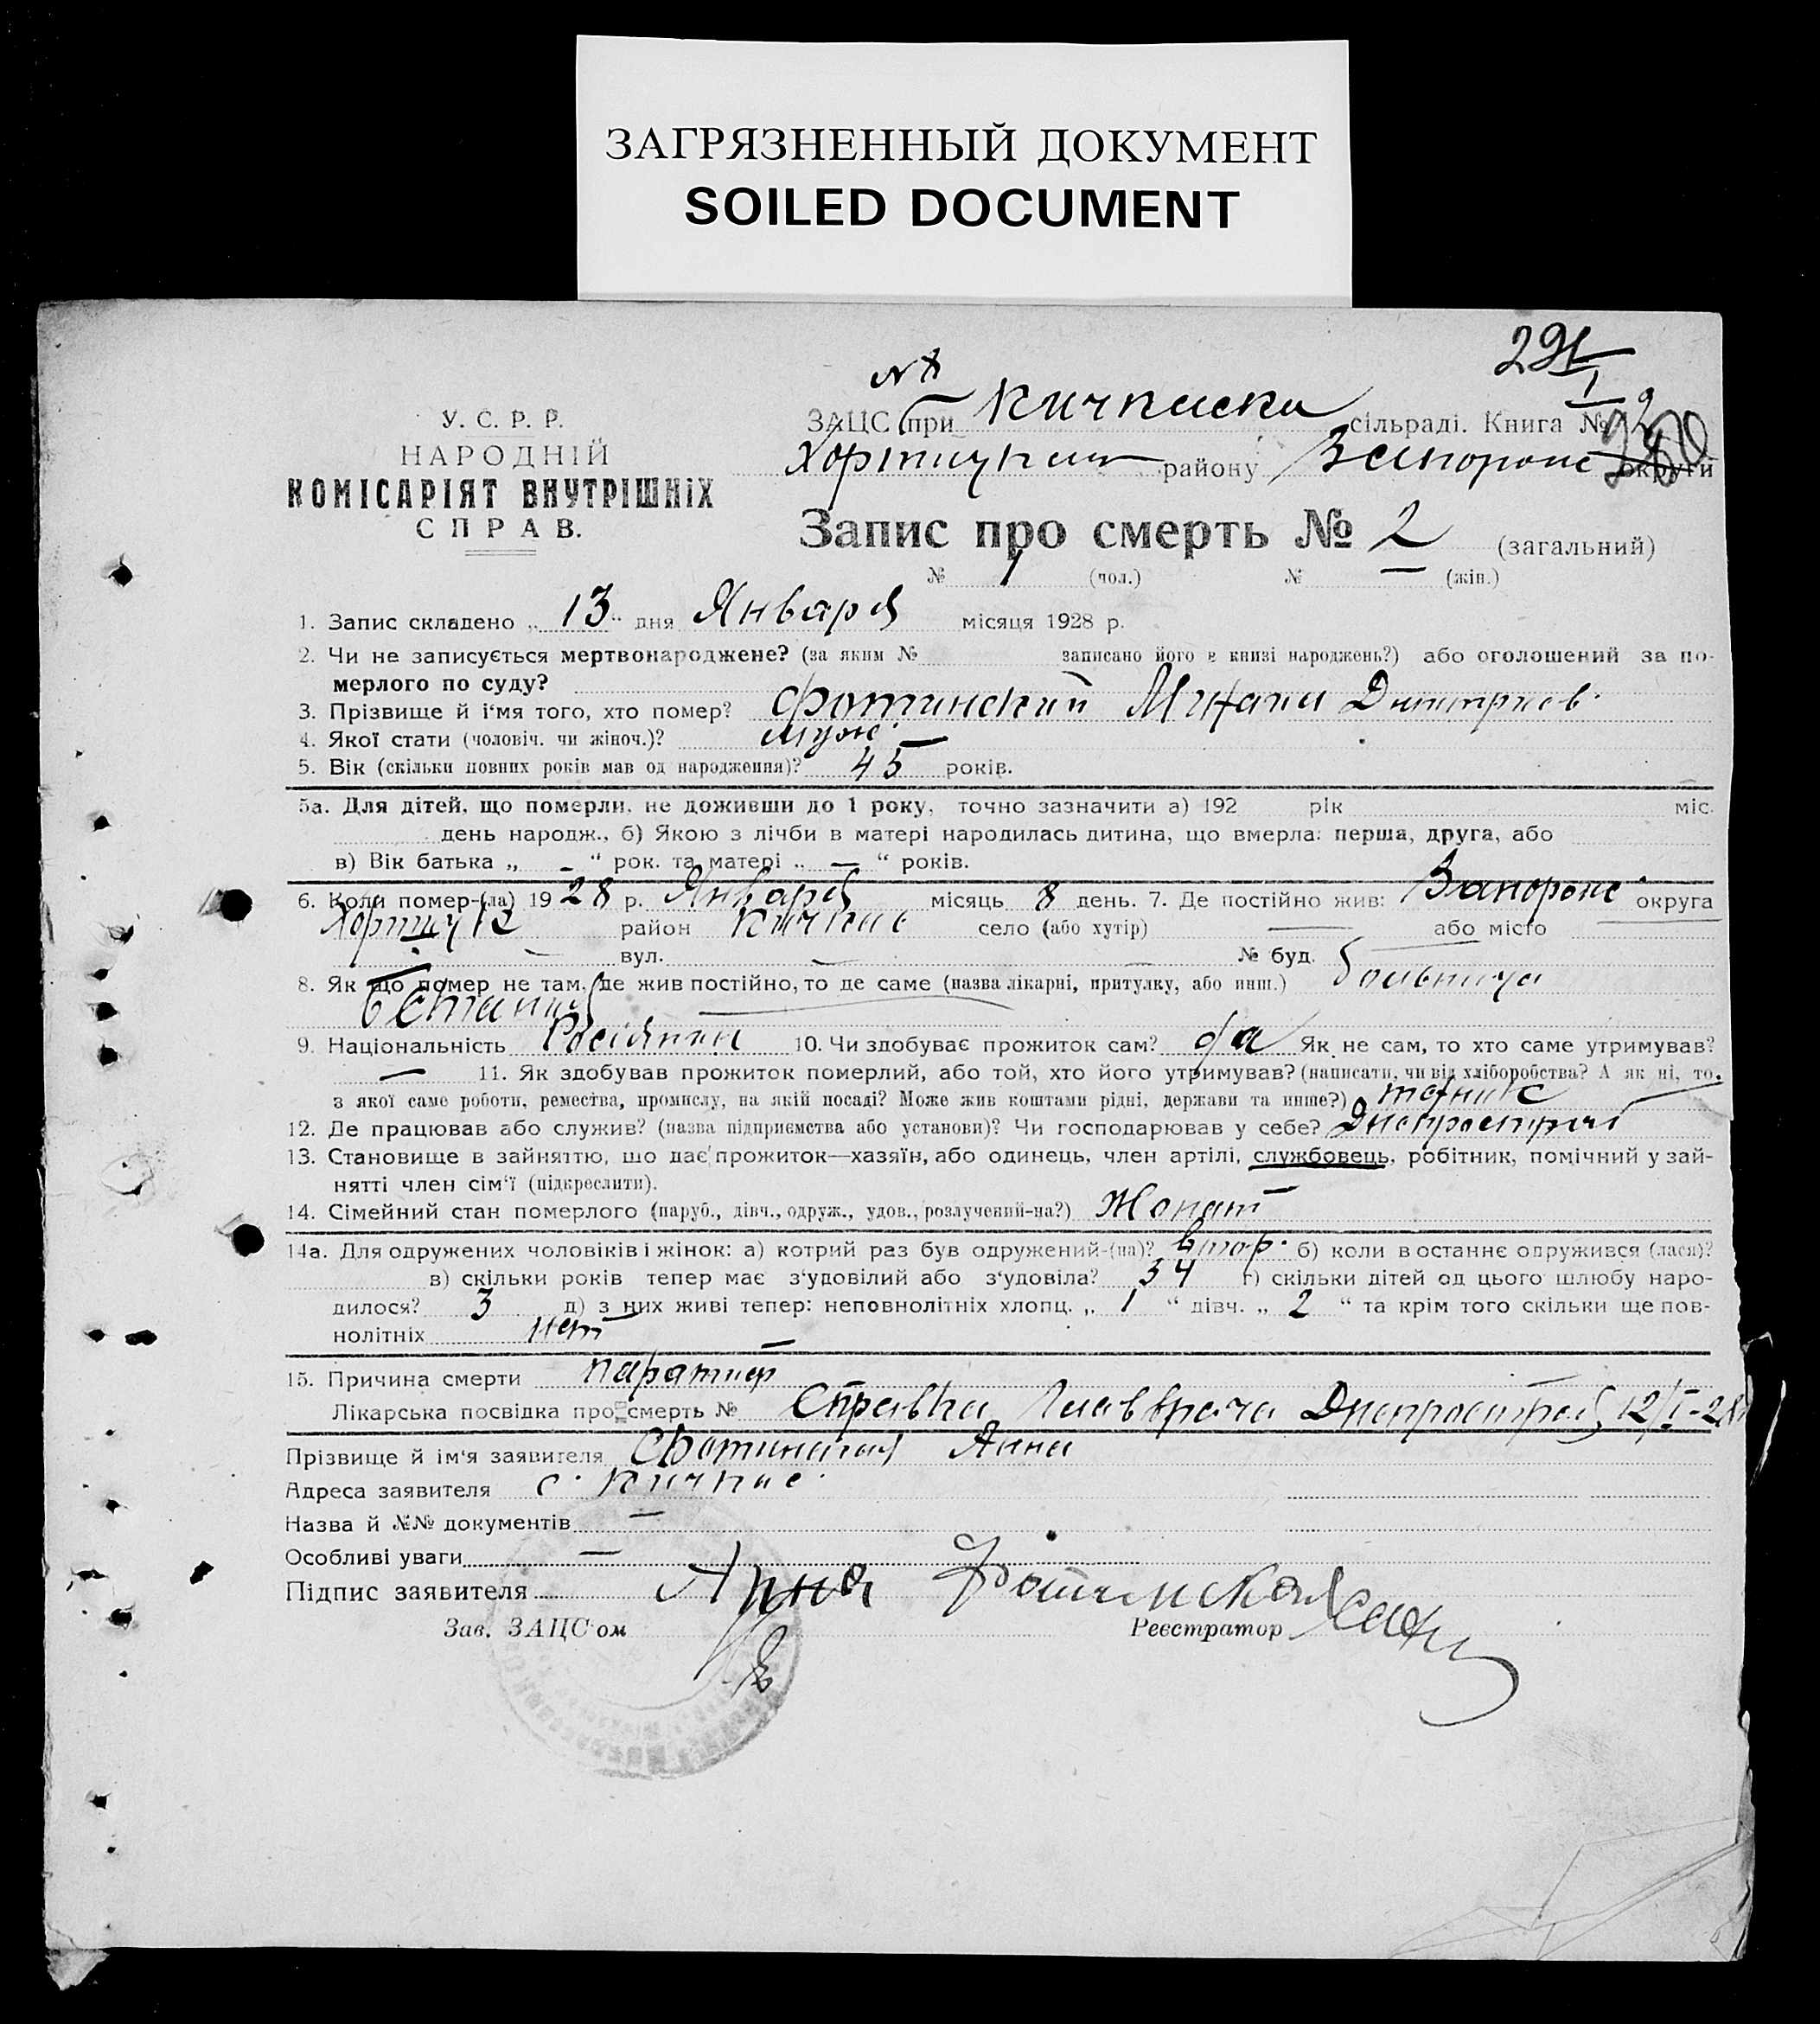 ЗАГРЯЗНЕННЫЙ ДОКУМЕНТ
SOILED DOCUMENT
У. С. Р. Р.
НАРОДНІЙ
КОМІСАРІЯТ ВНУТРІШНІХ
СПРАВ.
№ 8
ЗАЦС при Кичкаска сільраді. Книга № 2
Хортицьким району Запорожс округи
Запис про смерть № 2 (загальний)
№ 1 (чол.) № — (жін.)
1. Запис складено „ 13 " дня Января місяця 1928 р.
2. Чи не записується мертвонароджене? (за яким № записано його в книзі народжень?) або оголошений за по-
мерлого по суду?
3. Прізвище й і'мя того, хто помер? Фотинский Михаил Дмитриев.
4. Якої стати (чоловіч. чи жіноч.)? муж.
5. Вік (скільки повних років мав од народження)? 45 років.
5а. Для дітей, що померли, не доживши до 1 року, точно зазначити а) 192 рік міс.
день народж., б) Якою з лічби в матері народилась дитина, що вмерла: перша, друга, або
в) Вік батька „ - " рок. та матері „ — " років.
6. Коли помер-(ла) 1928 р. Января місяць 8 день. 7. Де постійно жив: Запорожс. округа
Хортиц район Кичкас село (або хутір) — або місто
вул. — № буд.
8. Як що помер не там, де жив постійно, то де саме (назва лікарні, притулку, або инш.) больница
9. Національність Росіянин 10. Чи здобуває прожиток сам? да Як не сам, то хто саме утримував?
— 11. Як здобував прожиток померлий, або той, хто його утримував? (написати, чи від хліборобства? А як ні, то,
з якої саме роботи, ремества, промислу, на якій посаді? Може жив коштами рідні, держави та инше?) техник
12. Де працював або служив? (назва підприємства або установи)? Чи господарював у себе? Днепрострой
13. Становище в зайняттю, що дає прожиток—хазяїн, або одинець, член артілі, службовець, робітник, помічний у зай-
нятті член сім'ї (підкреслити).
14. Сімейний стан померлого (паруб., дівч., одруж., удов., розлучений-на?) Жонат
14а. Для одружених чоловіків і жінок: а) котрий раз був одружений-(на)? втор. б) коли в останнє одружився (лася)?
в) скільки років тепер має з'удовілий або з'удовіла? 34 г) скільки дітей од цього шлюбу наро-
дилося? 3 д) з них живі тепер: неповнолітніх хлопц. „ 1 " дівч. „ 2 " та крім того скільки ще пов-
нолітніх нет
15. Причина смерти паратиф
Лікарська посвідка про смерть № Справка Главврача Днепростроя 12/I-28
Прізвище й ім'я заявителя Фотинская Анна
Адреса заявителя с. Кичкас.
Назва й №№ документів —
Особливі уваги —
Підпис заявителя Анна Фотинская
Зав. ЗАЦС'ом Реєстратор